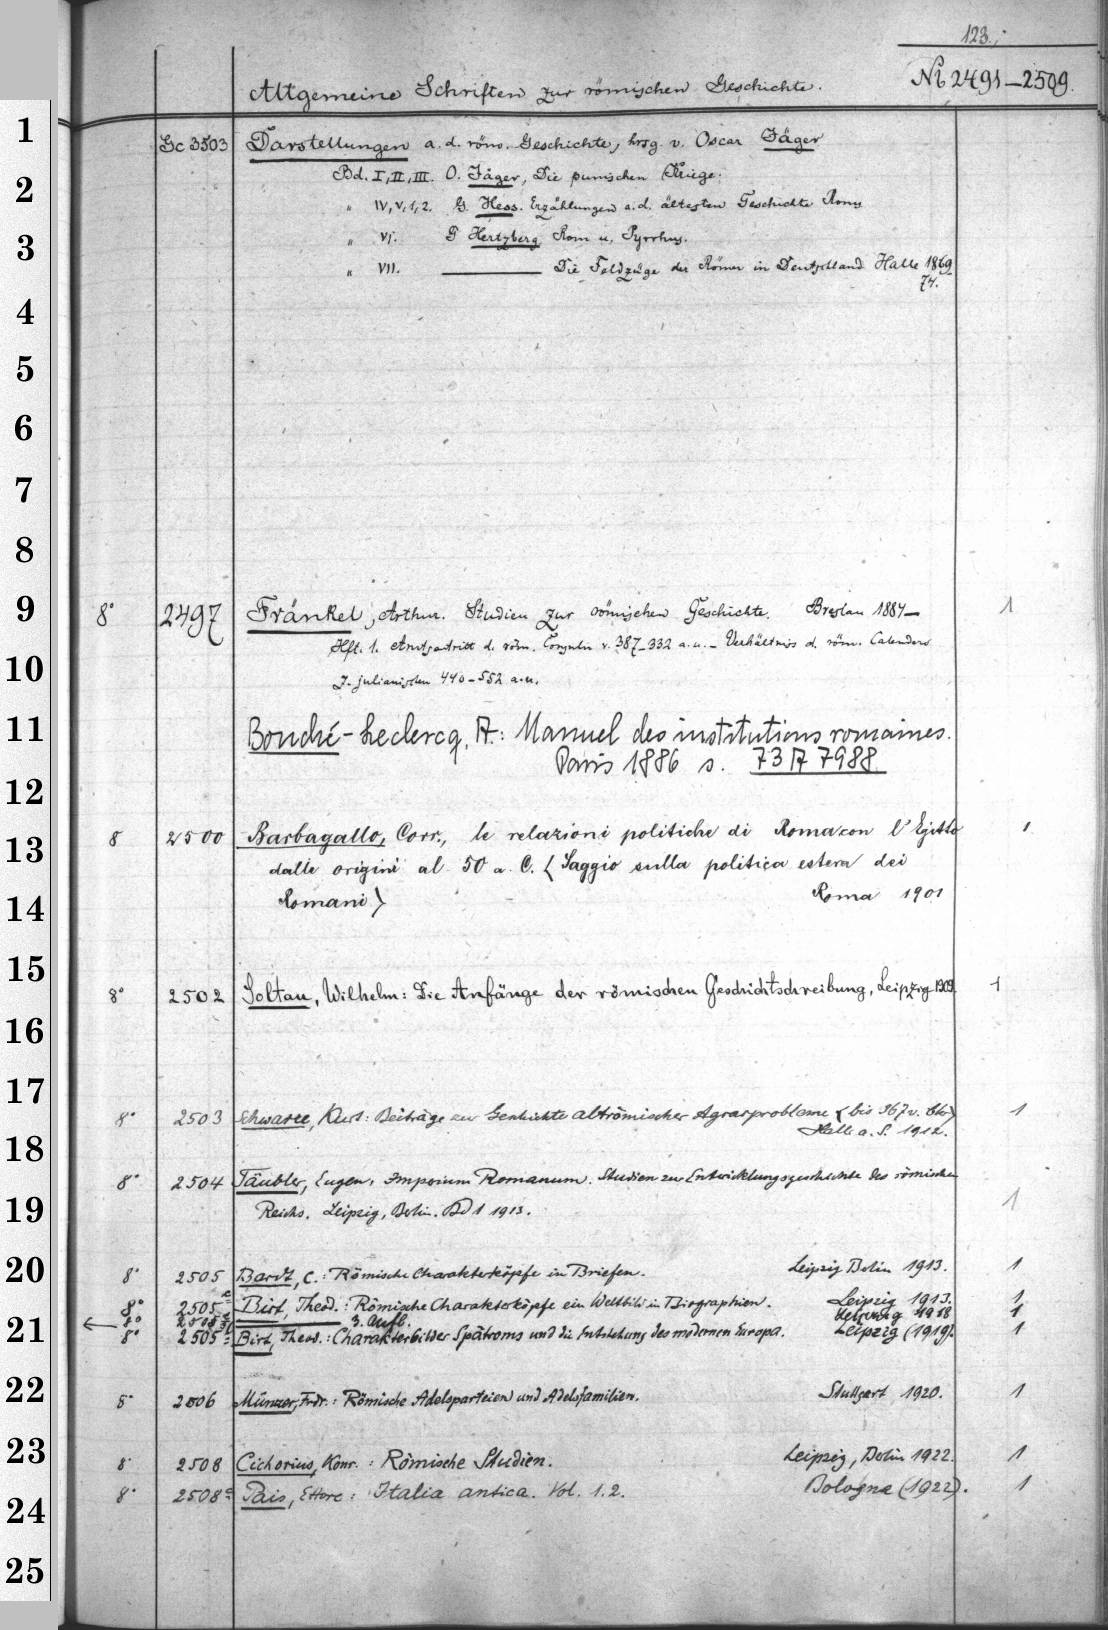 123.
Allgemeine Schriften zur römischen Geschichte.
Ni 2491–2509.
Gc 3503 Darstellungen a. d. röm. Geschichte, hrsg v. Oscar Jäger
Bd. I, II, III. O. Jäger, Die punischen Kriege.
" IV, V, 1, 2. G. Hess. Erzählungen a. d. ältesten Geschichte Roms
" VI. G Hertzberg Rom u. Pyrrhus.
" VII. ——— Die Feldzüge der Römer in Deutschland Halle 1869
74.
8° 2497 Fränkel, Arthur. Studien zur römischen Geschichte. Breslau 1884— 1
Hft. 1. Amtsantritt d. röm. Consuln v. 387–332 a. u. – Verhältniss d. röm. Calenders
z. julianischen 440–552 a. u.
Bouché-Leclercq, A.: Manuel des institutions romaines.
Paris 1886 s. 73 A 7988
8 2500 Barbagallo, Corr., le relazioni politiche di Roma con l'Egitto 1
dalle origini al 50 a. C. (Saggio sulla politica estera dei
Romani) Roma 1901
8° 2502 Soltau, Wilhelm: Die Anfänge der römischen Geschichtschreibung, Leipzig 1909. 1
8° 2503 Schwarze, Kurt: Beiträge zur Geschichte altrömischer Agrarprobleme (bis 367 v. Chr) 1
Halle a. S. 1912.
8° 2504 Täubler, Eugen. Imperium Romanum. Studien zur Entwicklungsgeschichte des römischen
Reichs. Leipzig, Berlin. Bd 1 1913. 1
8° 2505 Bardt, C.: Römische Charakterköpfe in Briefen. Leipzig Berlin 1913. 1
8° 2505 a Birt, Theod.: Römische Charakterköpfe ein Weltbild in Biographien. Leipzig 1913. 1
8° 3. Aufl. Leipzig 1918 1
8° 2505 Birt, Theod.: Charakterbilder Spätroms und die Entstehung des modernen Europa. Leipzig (1919). 1
8° 2506 Münzer, Frdr.: Römische Adelsparteien und Adelsfamilien. Stuttgart 1920. 1
8° 2508 Cichorius, Konr.: Römische Studien. Leipzig, Berlin 1922. 1
8° 2508 a Pais, Ettore: Italia antica. Vol. 1.2. Bologna (1922). 1
1
2
3
4
5
6
7
8
9
10
11
12
13
14
15
16
17
18
19
20
21
22
23
24
25